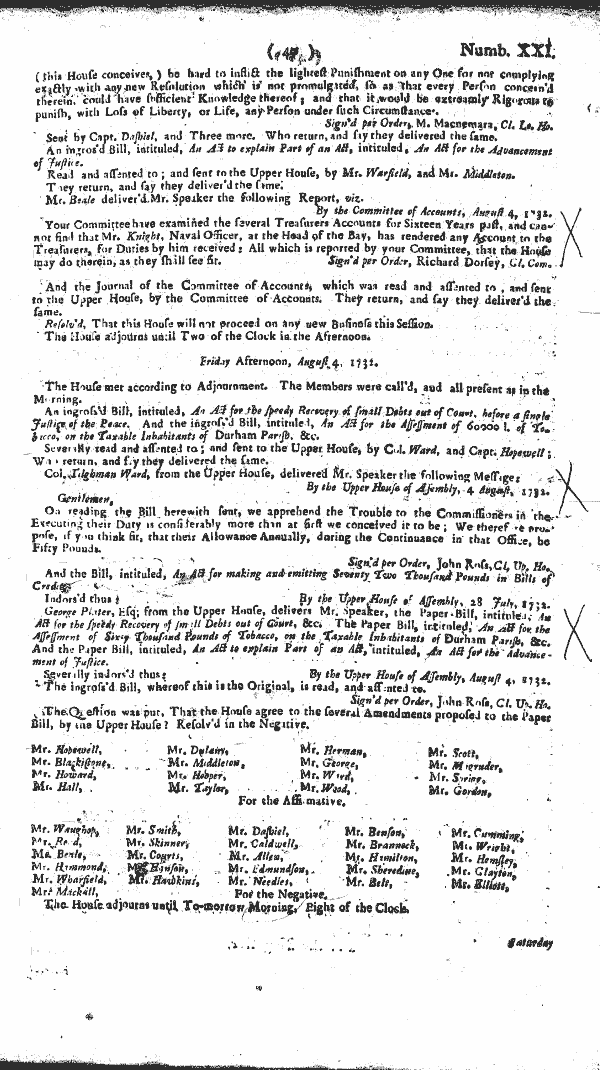 Numb. XXI.
(this House conceives,) be hard to inflict the lightest Punishment on any One for not complying
exactly with any new Resolution which is not promulgated, so as that every Person concern'd
therein could have sufficient Knowledge thereof; and that it would be extreamly Rigorous to
punish, with Loss of Liberty, or Life, any Person under such Circumstance.
Sign'd per Order, M. Macnemara, Cl. Lo. Ho.
Sent by Capt. Dashiel, and Three more. Who return, and say they delivered the same.
An ingros'd Bill, intituled, An Act to explain Part of an Act, intituled, An Act for the Advancement
of Justice.
Read and assented to; and sent to the Upper House, by Mr. Warfield, and Mr. Middleton.
They return, and say they deliver'd the same.
Mr. Beale deliver'd Mr. Speaker the following Report, viz.
By the Committee of Accounts, August 4, 1732.
Your Committee have examined the several Treasurers Accounts for Sixteen Years past, and can-
not find that Mr. Knight, Naval Officer, at the Head of the Bay, has rendered any Account to the
Treasurers, for Duties by him received: All which is reported by your Committee, that the House
may do therein, as they shall see fit. Sign'd per Order, Richard Dorsey, Cl. Com.
And the Journal of the Committee of Accounts, which was read and assented to, and sent
to the Upper House, by the Committee of Accounts. They return, and say they deliver'd the
same.
Resolv'd, That this House will not proceed on any new Business this Session.
The House adjourns until Two of the Clock in the Afternoon.
Friday Afternoon, August 4, 1732.
The House met according to Adjournment. The Members were call'd, and all present as in the
Morning.
An ingros'd Bill, intituled, An Act for the speedy Recovery of small Debts out of Court, before a single
Justice of the Peace. And the ingros'd Bill, intituled, An Act for the Assessment of 60000 l. of To-
bacco, on the Taxable Inhabitants of Durham Parish, &c.
Severally read and assented to; and sent to the Upper House, by Col. Ward, and Capt. Hopewell;
Who return, and say they delivered the same.
Col. Tilghman Ward, from the Upper House, delivered Mr. Speaker the following Message;
By the Upper House of Assembly, 4 August, 1732.
Gentlemen,
On reading the Bill herewith sent, we apprehend the Trouble to the Commissioners in the
Executing their Duty is considerably more than at first we conceived it to be; We therefore pro-
pose, if you think fit, that their Allowance Annually, during the Continuance in that Office, be
Fifty Pounds.
Sign'd per Order, John Ross, Cl. Up. Ho.
And the Bill, intituled, An Act for making and emitting Seventy Two Thousand Pounds in Bills of
Credit;
Indors'd thus; By the Upper House of Assembly, 28 July, 1732.
George Plater, Esq; from the Upper House, delivers Mr. Speaker, the Paper Bill, intituled; An
Act for the speedy Recovery of small Debts out of Court, &c. The Paper Bill, intituled, An Act for the
Assessment of Sixty Thousand Pounds of Tobacco, on the Taxable Inhabitants of Durham Parish, &c.
And the Paper Bill, intituled, An Act to explain Part of an Act, intituled, An Act for the Advance-
ment of Justice.
Severally indors'd thus; By the Upper House of Assembly, August 4, 1732.
The ingros'd Bill, whereof this is the Original, is read, and assented to.
Sign'd per Order, John Ross, Cl. Up. Ho.
The Question was put, That the House agree to the several Amendments proposed to the Paper
Bill, by the Upper House? Resolv'd in the Negative.
Mr. Hopewell, Mr. Dulany, Mr. Herman, Mr. Scott,
Mr. Blackistone, Mr. Middleton, Mr. George, Mr. Magruder,
Mr. Howard, Mr. Hooper, Mr. Ward, Mr. Sprigg,
Mr. Hall, Mr. Taylor, Mr. Wood, Mr. Gordon,
For the Affirmative.
Mr. Waughop, Mr. Smith, Mr. Dashiel, Mr. Benson, Mr. Cumming,
Mr. Read, Mr. Skinner, Mr. Caldwell, Mr. Brannock, Mr. Wright,
Mr. Beale, Mr. Courts, Mr. Allen, Mr. Hamilton, Mr. Hemsley,
Mr. Hammond, Mr. Hanson, Mr. Edmundson, Mr. Sheredine, Mr. Clayton,
Mr. Warfield, Mr. Hawkins, Mr. Needles, Mr. Belt, Mr. Elliott,
Mr. Mackall, For the Negative.
The House adjourns until To-morrow Morning, Eight of the Clock.
Saturday